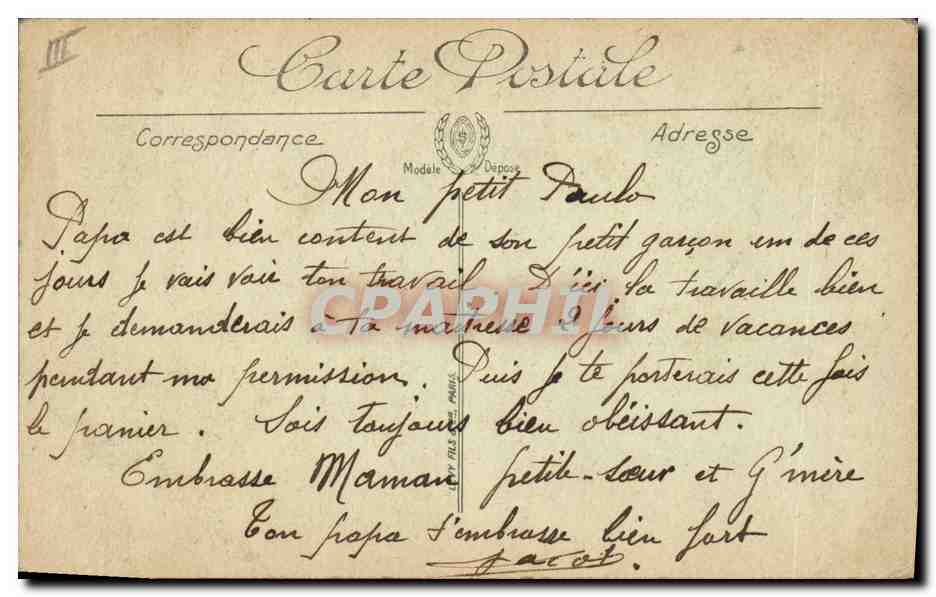 III
Carte Postale
Correspondance
Adresse
Modèle Déposé
Mon petit Paulo
Papa est bien content de son petit garçon un de ces
jours je vais voir ton travail. D'ici la travaille bien
et je demanderais à ta maitresse 2 jours de vacances
pendant ma permission. Puis je te porterais cette fois
le panier. Sois toujours bien obéissant.
Embrasse Maman petite-sœur et G'mère
Ton papa t'embrasse bien fort
Jacot.
LEVY FILS & Cie, PARIS
CPAPHIL